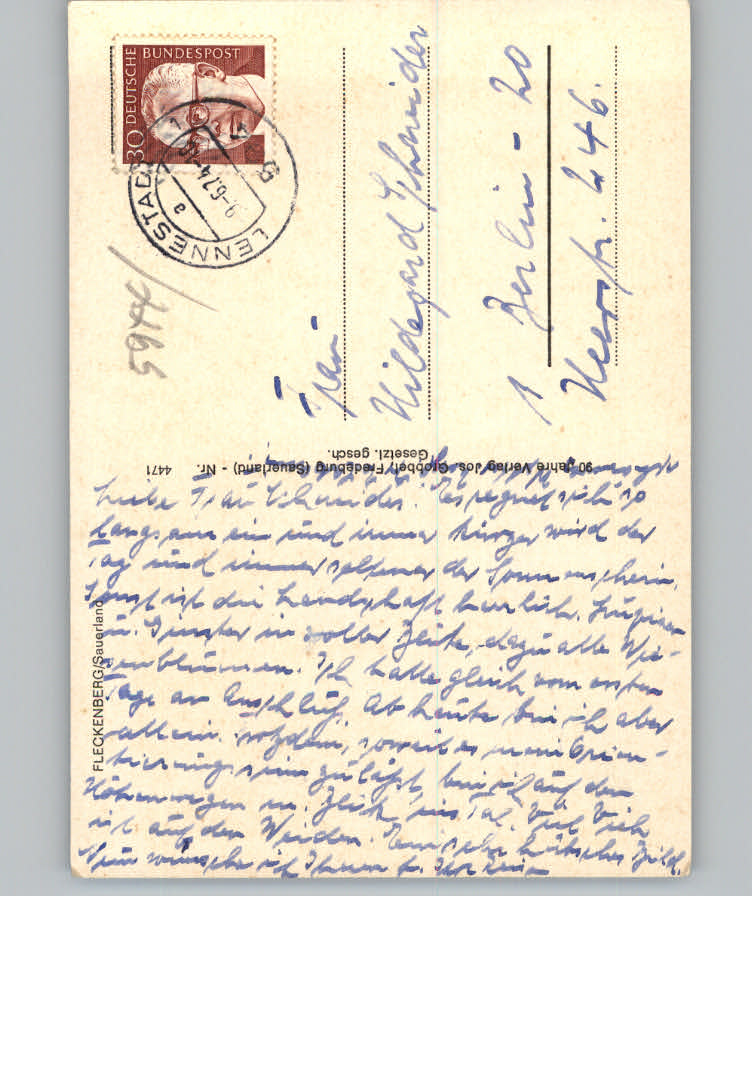 DEUTSCHE BUNDESPOST
30
LENNESTADT 1
a
9-6.74-18
5944
Frau
Hildegard Schneider
1 Berlin - 20
Heerstr. 446.
90 Jahre Verlag Jos. Grobbel, Fredeburg (Sauerland) - Nr. 4471
Gesetzl. gesch.
FLECKENBERG/Sauerland
Liebe Frau Schneider. Es regnet sich so
langsam ein und immer kürzer wird der
Tag und immer seltener der Sonnenschein.
Sonst ist die Landschaft herrlich. Lupinen
u. Ginster in voller Blüte, dazu alle Wie-
senblumen. Ich hatte gleich vom ersten
Tage an Anschluß. Ab heute bin ich aber
allein. Trotzdem, soweit es mein Orien-
tierungssinn zuläßt, bin ich auf den
Höhenwegen m. Blick ins Tal. Viel Vieh
ist auf den Weiden. Ein sehr hübsches Bild.
Nun wünsche ich Ihnen